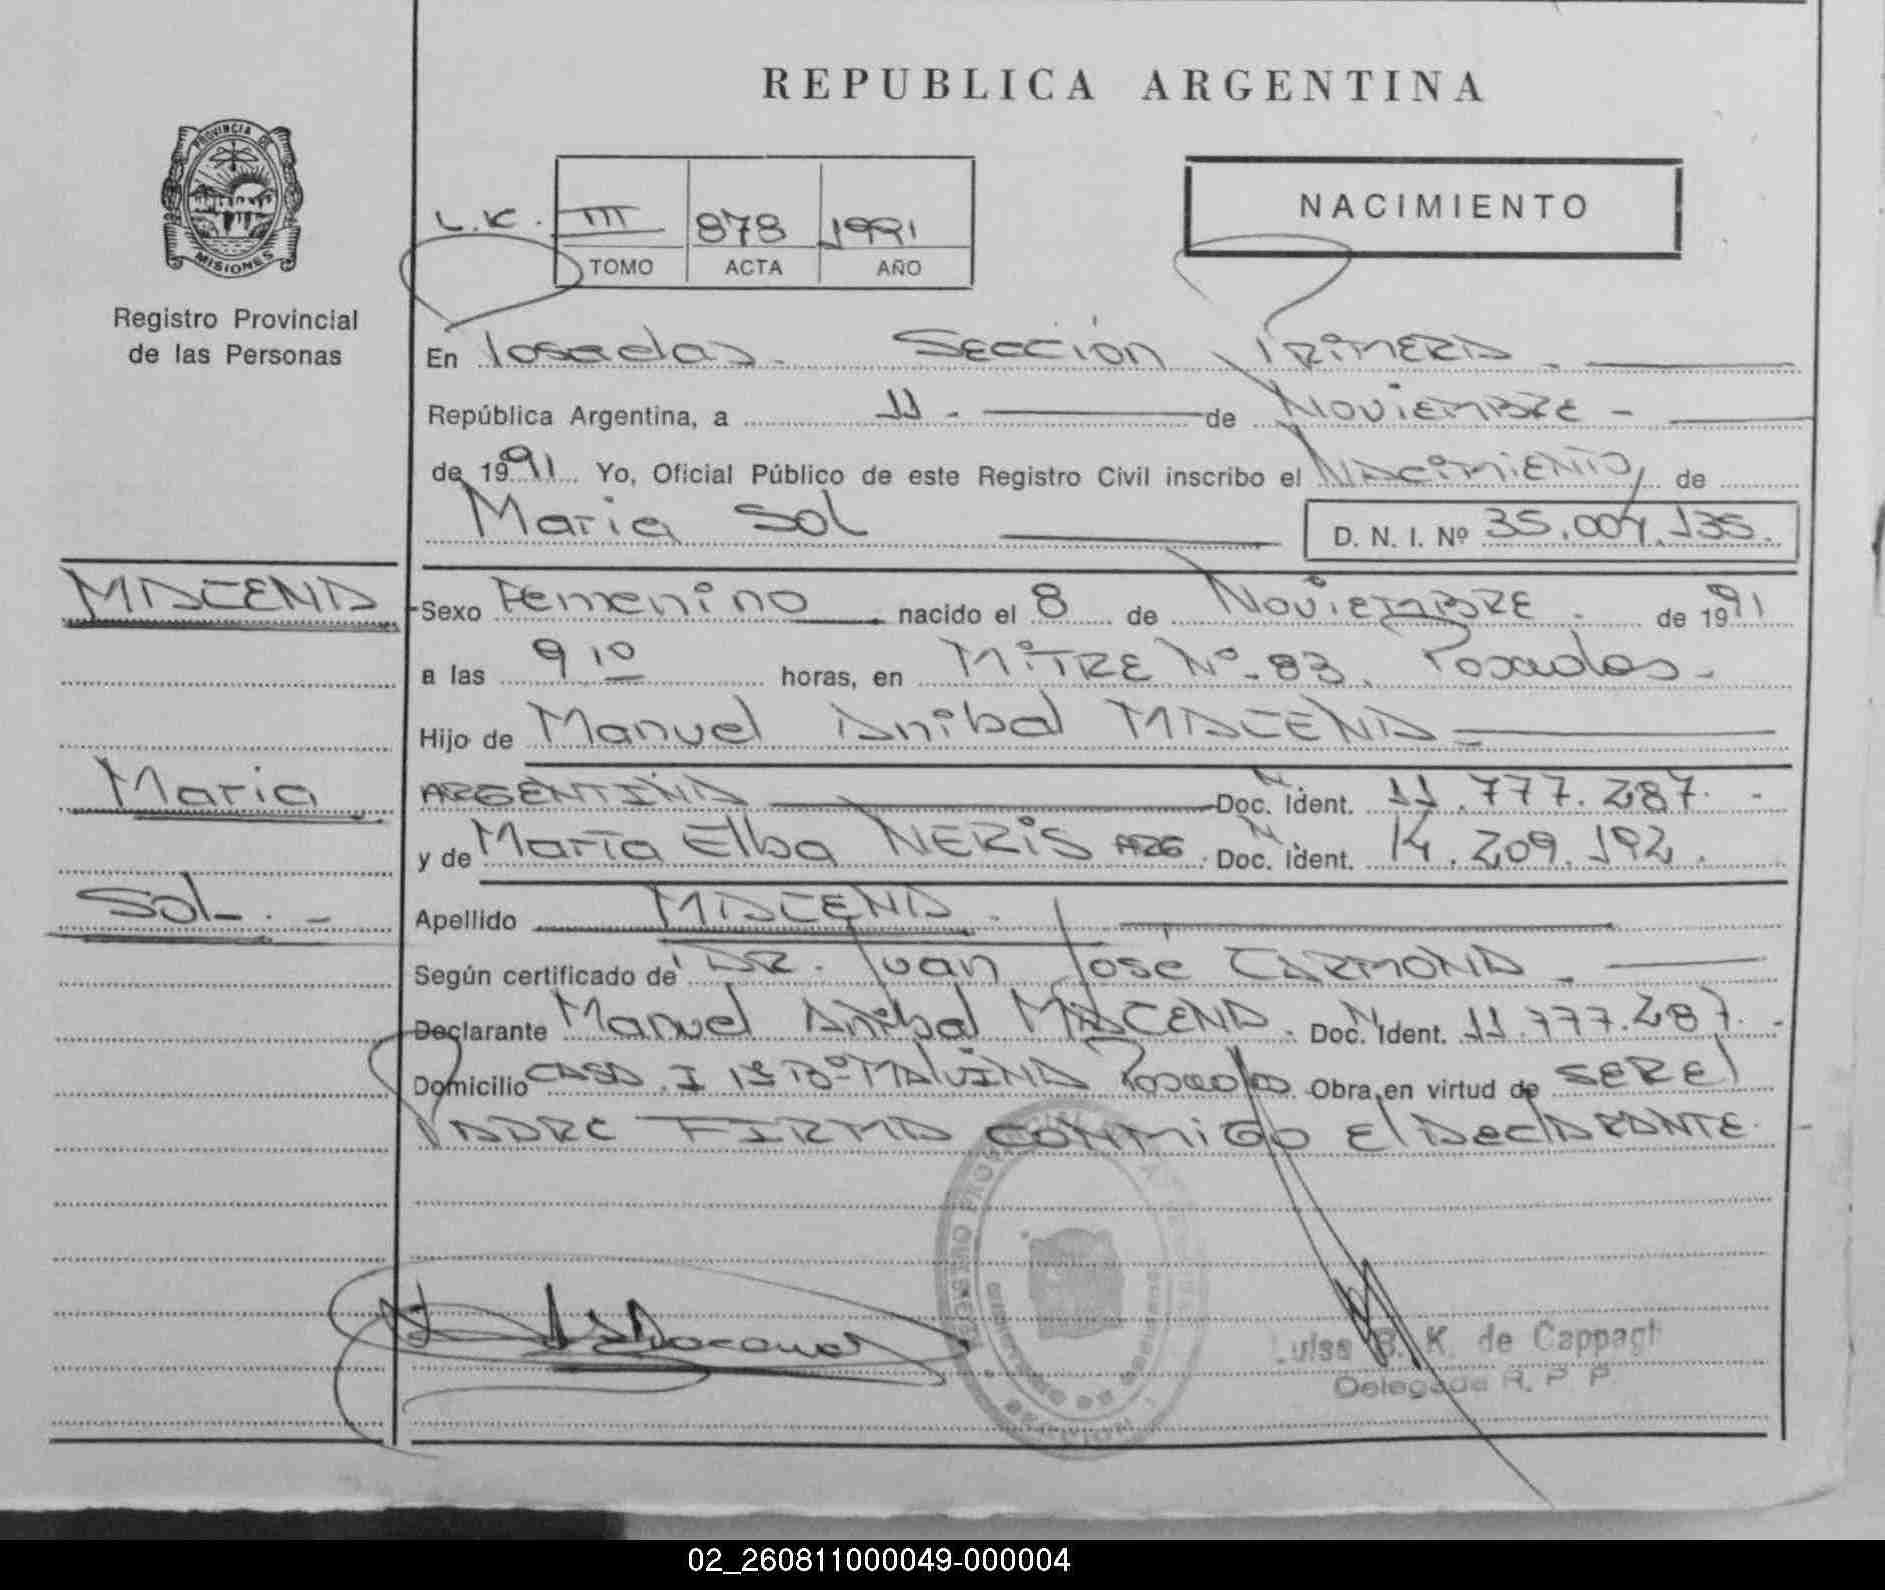 REPUBLICA ARGENTINA
PROVINCIA DE
MISIONES
Registro Provincial
de las Personas
NACIMIENTO
L.K. III 878 1991
TOMO ACTA AÑO
En Posadas. Sección Primera.
República Argentina, a 11 - de Noviembre -
de 1991 Yo, Oficial Público de este Registro Civil inscribo el Nacimiento de
Maria Sol
D. N. I. Nº 35.007.135.
MACENA
Sexo Femenino nacido el 8 de Noviembre. de 1991
a las 9 10 horas, en Mitre Nº-83. Posadas-
Hijo de Manuel Anibal MACENA
Maria
ARGENTINA Doc. N Ident. 11.777.287. -
y de María Elba NERIS ARG. Doc. N Ident. 14.209.192.
Sol. -
Apellido MACENA.
Según certificado de DR. Juan José CARMONA.
Declarante Manuel Anibal MACENA. Doc. N Ident. 11.777.287. -
Domicilio CASA. I Posadas. Obra en virtud de SER El
PADRE FIRMA CONMIGO El DeclARANTE.
Luisa B. K. de Cappagli
Delegada R. P. P
02_260811000049-000004